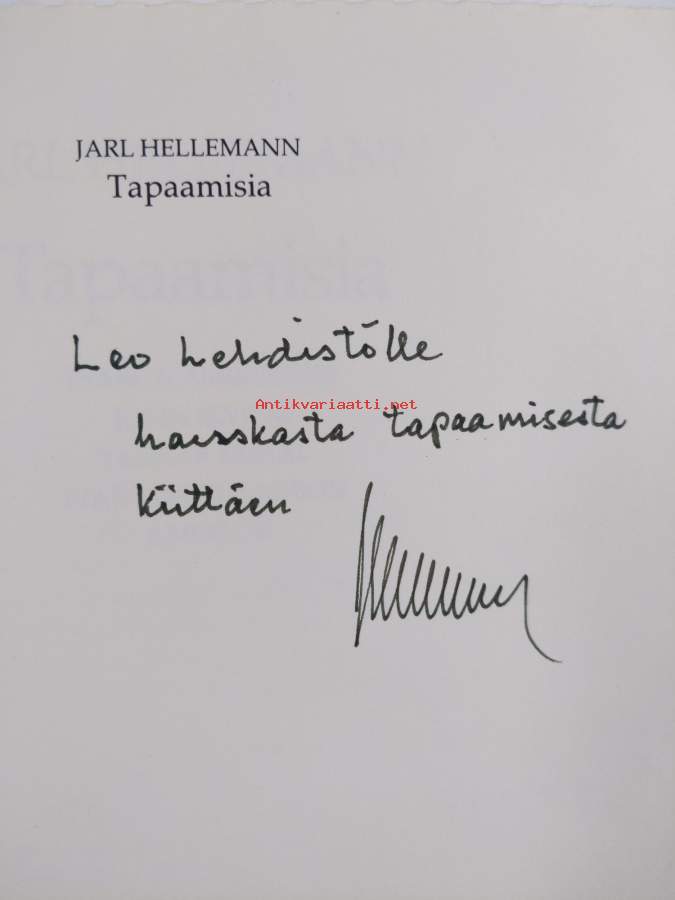 JARL HELLEMANN
Tapaamisia
Leo Lehdistölle
Antikvariaatti.net
hauskasta tapaamisesta
kiittäen